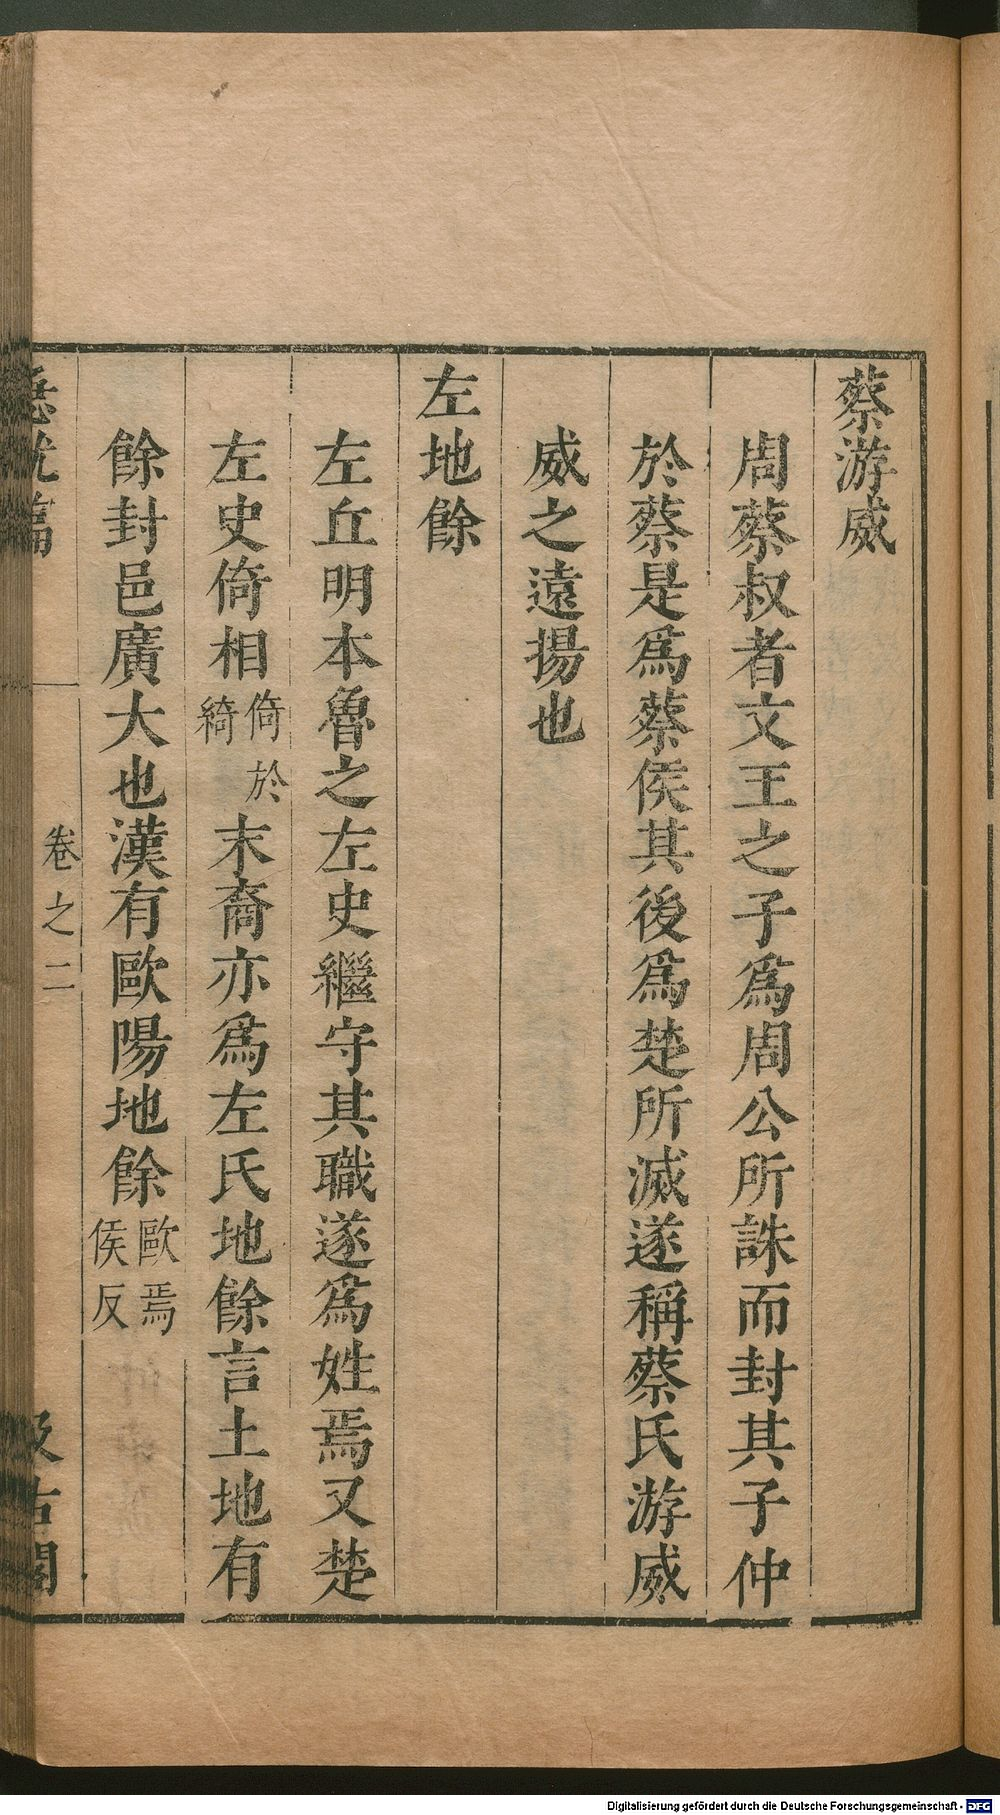 蔡游威
周蔡叔者文王之子爲周公所誅而封其子仲
於蔡是爲蔡侯其後爲楚所滅遂稱蔡氏游威
威之遠揚也
左地餘
左丘明本魯之左史繼守其職遂爲姓焉又楚
左史倚相倚於綺末裔亦爲左氏地餘言土地有
餘封邑廣大也漢有歐陽地餘歐焉侯反
急就篇 卷之二 汲古閣
Digitalisierung gefördert durch die Deutsche Forschungsgemeinschaft - DFG